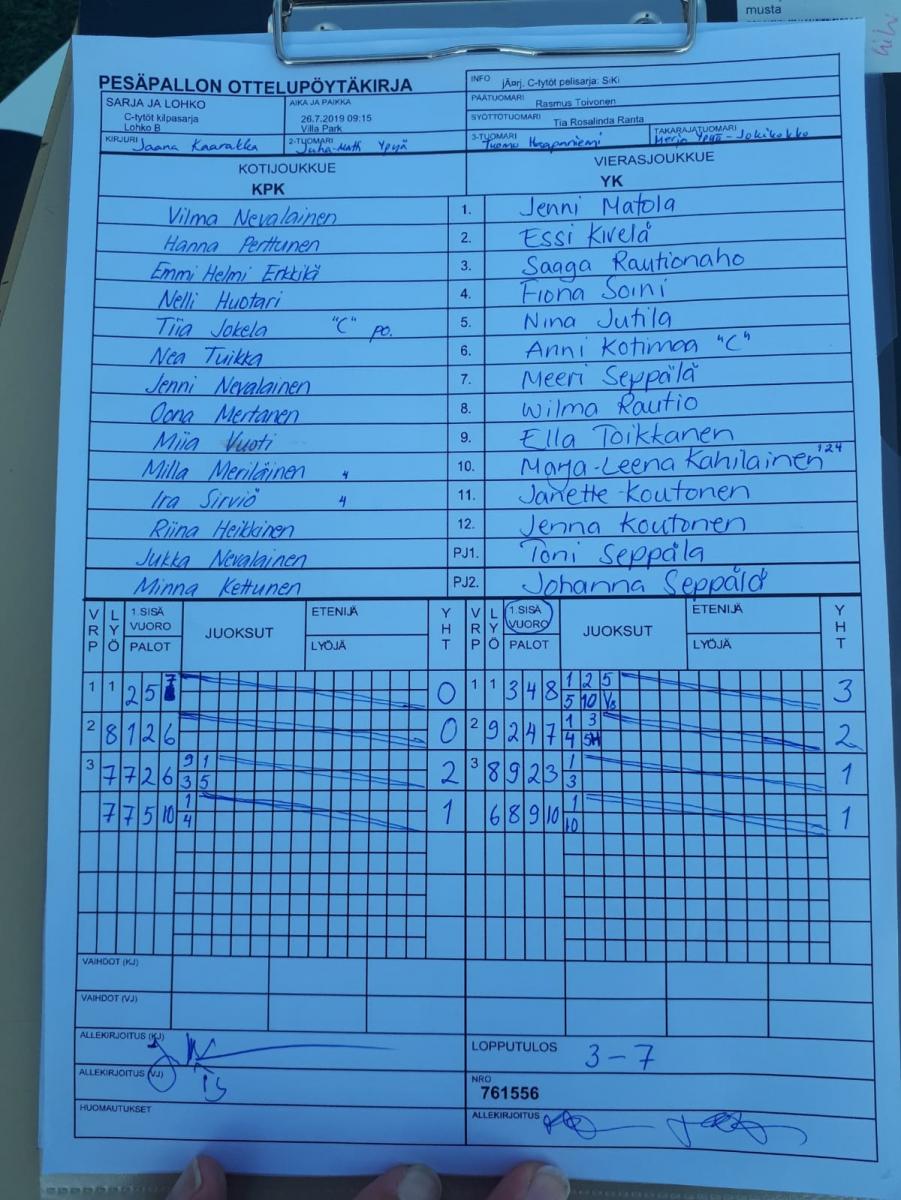 musta
PESÄPALLON OTTELUPÖYTÄKIRJA
INFO jÄorj. C-tytöt pelisarja: SiKi
PÄÄTUOMARI Rasmus Toivonen
SARJA JA LOHKO AIKA JA PAIKKA
SYÖTTÖTUOMARI Tia Rosalinda Ranta
C-tytöt kilpasarja 26.7.2019 09:15
Lohko B Villa Park
KIRJURI Jaana Kaarakka 2-TUOMARI Juha-Matti Ypyä 3-TUOMARI Tuomo TAKARAJATUOMARI Merja Ypyä-Jokikokko
KOTIJOUKKUE VIERASJOUKKUE
KPK YK
Vilma Nevalainen 1. Jenni Matola
Hanna Perttunen 2. Essi Kivelä
Emmi Helmi Erkkilä 3. Saaga Rautionaho
Nelli Huotari 4. Fiona Soini
Tiia Jokela "C" po. 5. Nina Jutila
Nea Tuikka 6. Anni Kotimaa "C"
Jenni Nevalainen 7. Meeri Seppälä
Oona Mertanen 8. Wilma Rautio
Miia Vuoti 9. Ella Toikkanen
Milla Meriläinen 4 10. Marja-Leena Kahilainen 124
Ira Sirviö 4 11. Janette Koutonen
Riina Heikkinen 12. Jenna Koutonen
Jukka Nevalainen PJ1. Toni Seppäla
Minna Kettunen PJ2. Johanna Seppälä
VRP LYÖ 1.SISÄ VUORO PALOT JUOKSUT ETENIJÄ LYÖJÄ YHT VRP LYÖ 1.SISÄ VUORO PALOT JUOKSUT ETENIJÄ LYÖJÄ YHT
1 1 2 5 7 0 1 1 3 4 8 1 2 5 3
5 10
2 8 1 2 6 0 2 9 2 4 7 1 3 2
4
3 7 7 2 6 9 1 2 3 8 9 2 3 1 1
3 5 3
7 7 5 10 1 1 6 8 9 10 1 1
4 10
VAIHDOT (KJ)
VAIHDOT (VJ)
ALLEKIRJOITUS (KJ)
LOPPUTULOS 3-7
ALLEKIRJOITUS (VJ)
NRO
761556
HUOMAUTUKSET
ALLEKIRJOITUS